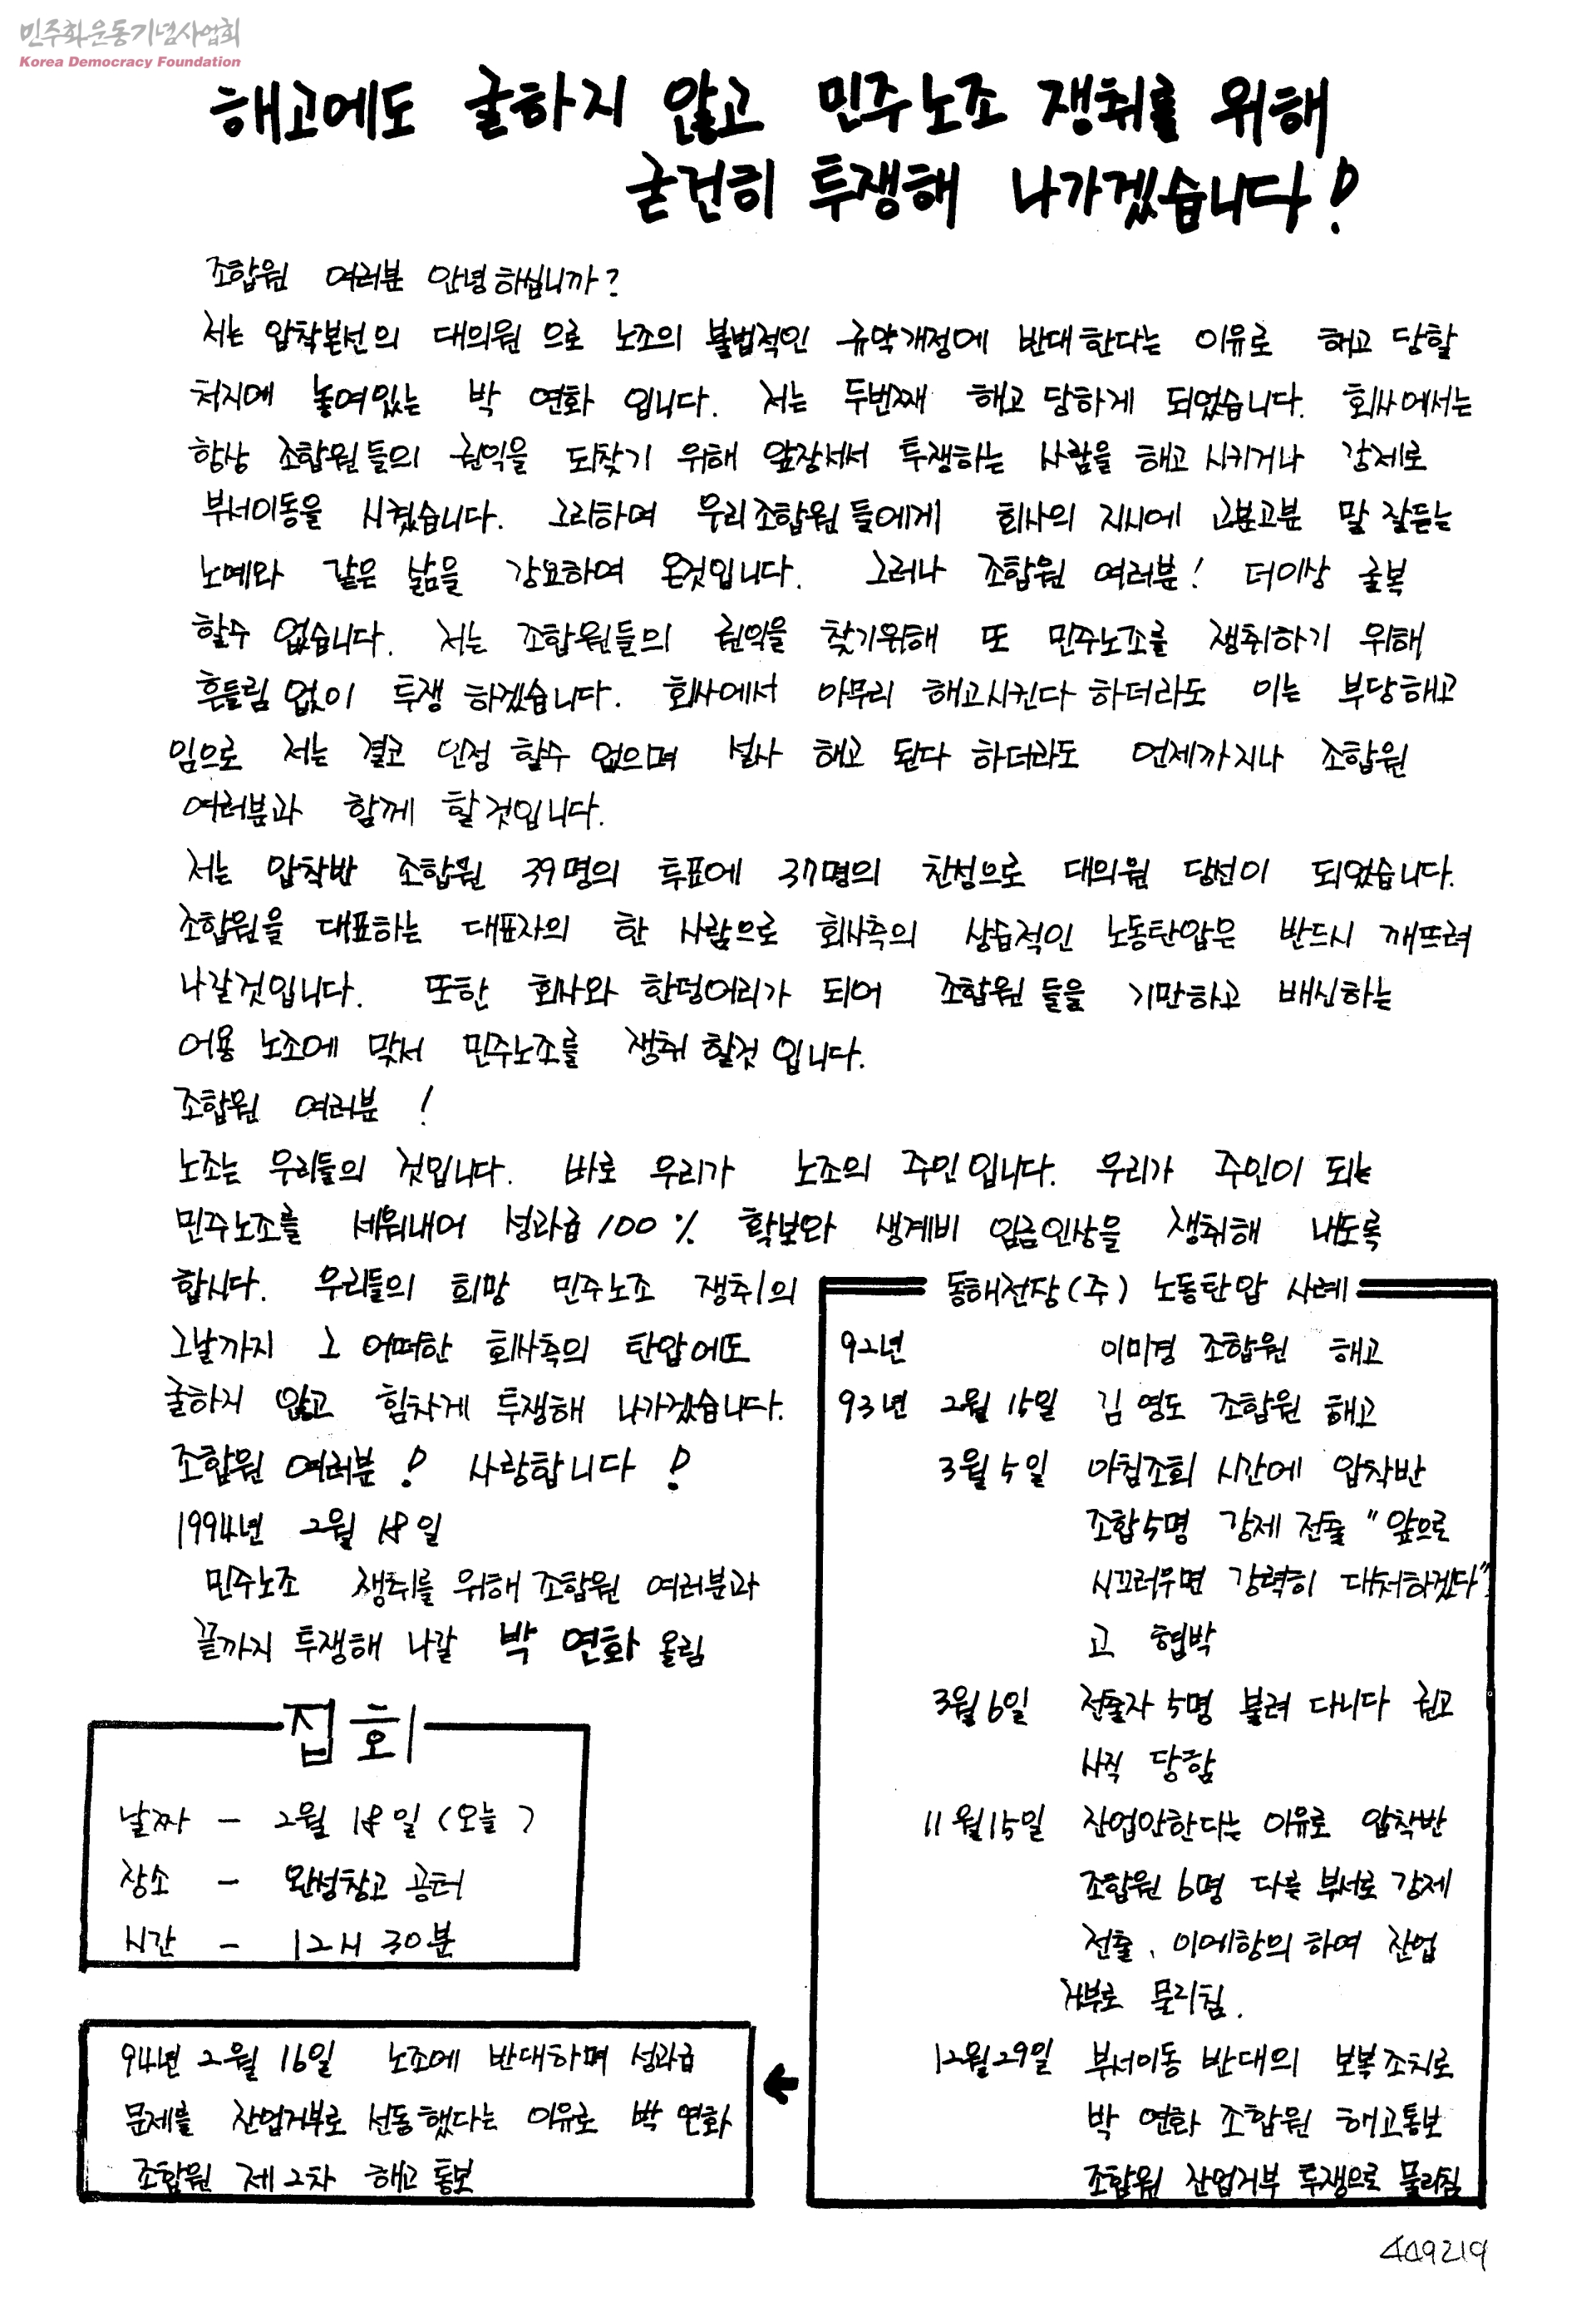 민주화운동기념사업회
Korea Democracy Foundation
해고에도 굴하지 않고 민주노조 쟁취를 위해
굳건히 투쟁해 나가겠습니다!
조합원 여러분 안녕하십니까?
저는 압착본선의 대의원 으로 노조의 불법적인 규약개정에 반대한다는 이유로 해고 당할
처지에 놓여있는 박 연화 입니다. 저는 두번째 해고 당하게 되었습니다. 회사에서는
항상 조합원들의 권익을 되찾기 위해 앞장서서 투쟁하는 사람을 해고 시키거나 강제로
부서이동을 시켰습니다. 그리하여 우리조합원들에게 회사의 지시에 고분고분 말 잘듣는
노예와 같은 삶을 강요하여 온것입니다. 그러나 조합원 여러분! 더이상 굴복
할수 없습니다. 저는 조합원들의 권익을 찾기위해 또 민주노조를 쟁취하기 위해
흔들림 없이 투쟁 하겠습니다. 회사에서 아무리 해고시킨다 하더라도 이는 부당해고
임으로 저는 결코 인정 할수 없으며 설사 해고 된다 하더라도 언제까지나 조합원
여러분과 함께 할것입니다.
저는 압착반 조합원 39명의 투표에 37명의 찬성으로 대의원 당선이 되었습니다.
조합원을 대표하는 대표자의 한 사람으로 회사측의 상습적인 노동탄압은 반드시 깨뜨려
나갈것입니다. 또한 회사와 한덩어리가 되어 조합원들을 기만하고 배신하는
어용 노조에 맞서 민주노조를 쟁취 할것 입니다.
조합원 여러분 !
노조는 우리들의 것입니다. 바로 우리가 노조의 주인입니다. 우리가 주인이 되는
민주노조를 세워내어 성과급 100% 확보와 생계비 임금인상을 쟁취해 내도록
합시다. 우리들의 희망 민주노조 쟁취의
그날까지 그 어떠한 회사측의 탄압에도
굴하지 않고 힘차게 투쟁해 나가겠습니다.
조합원 여러분! 사랑합니다!
1994년 2월 18일
민주노조 쟁취를 위해 조합원 여러분과
끝까지 투쟁해 나갈 박 연화 올림
집회
날짜 - 2월 18일 (오늘)
장소 - 완성창고 공터
시간 - 12시 30분
동해전장(주) 노동탄압 사례
92년 이미경 조합원 해고
93년 2월 15일 김 영도 조합원 해고
3월 5일 아침조회 시간에 압착반
조합5명 강제 전출 "앞으로
시끄러우면 강력히 대처하겠다"
고 협박
3월 6일 전출자 5명 불려 다니다 권고
사직 당함
11월 15일 잔업안한다는 이유로 압착반
조합원 6명 다른 부서로 강제
전출, 이에항의 하여 잔업
거부로 물리침.
12월 29일 부서이동 반대의 보복 조치로
박 연화 조합원 해고통보
조합원 잔업거부 투쟁으로 물리침
94년 2월 16일 노조에 반대하며 성과급
문제를 잔업거부로 선동했다는 이유로 박 연화
조합원 제2차 해고 통보
409219